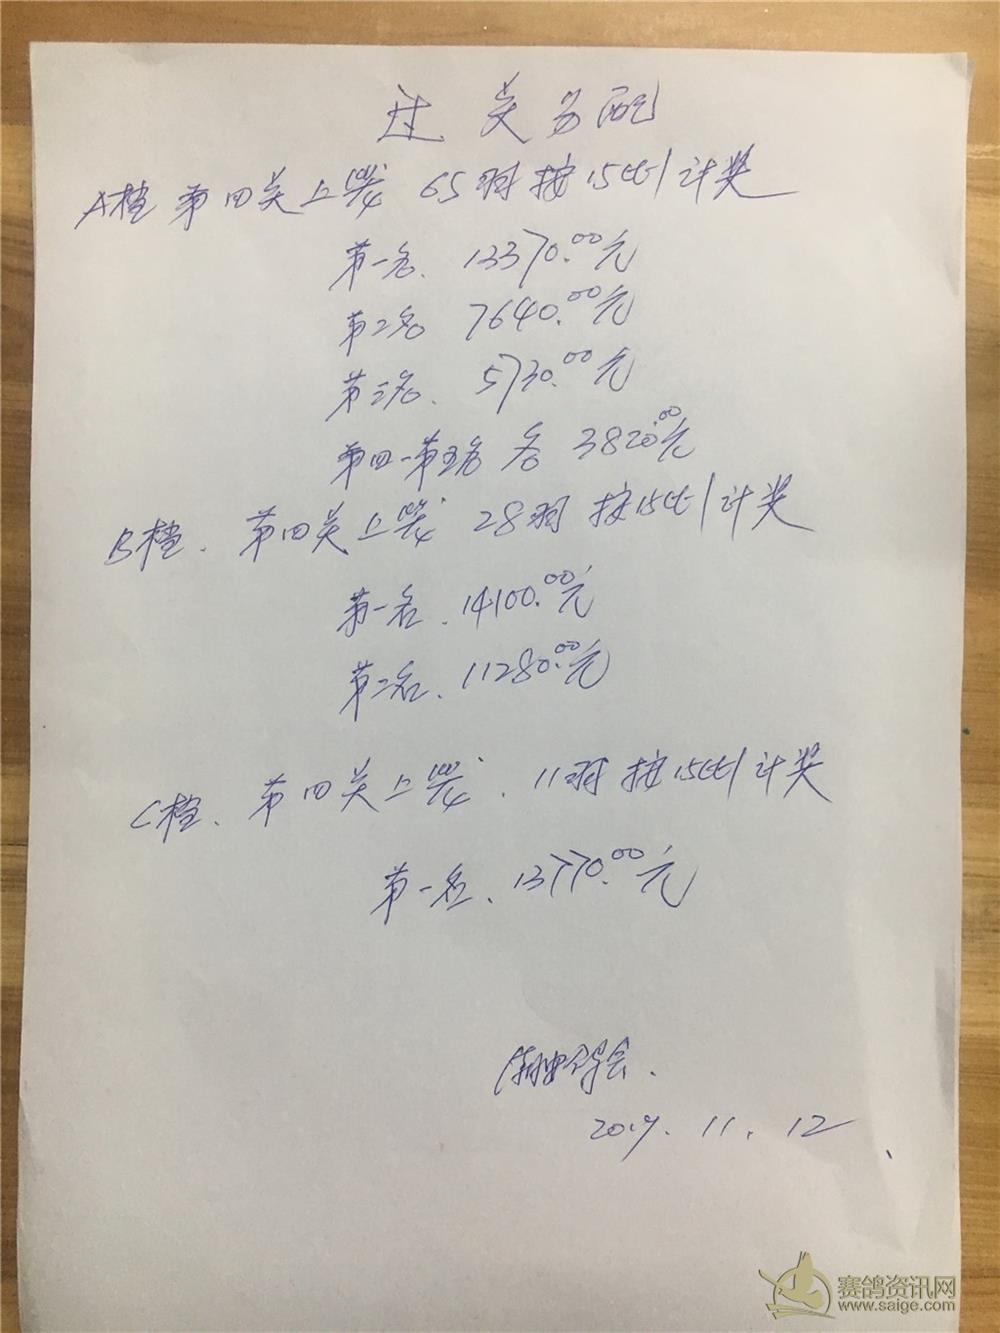 过关分配
A档 第四关上笼 65羽按15比1计奖
第一名. 13370.00元
第二名 7640.00元
第三名. 5730.00元
第四一第五名 各 3820.00元
B档. 第四关上笼 28羽 按15比1计奖
第一名. 14100.00元
第二名. 11280.00元
C档. 第四关上笼. 11羽按15比1计奖
第一名. 13770.00元
会.
2019. 11. 12
赛鸽资讯网
www.saige.com